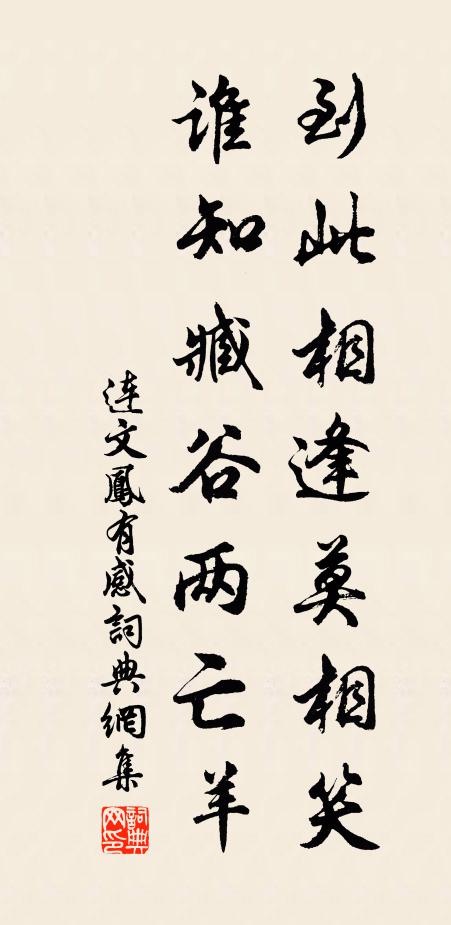 到此相逢莫相笑
谁知臧谷两亡羊
连文鳳有感詞典網集
詞典網印